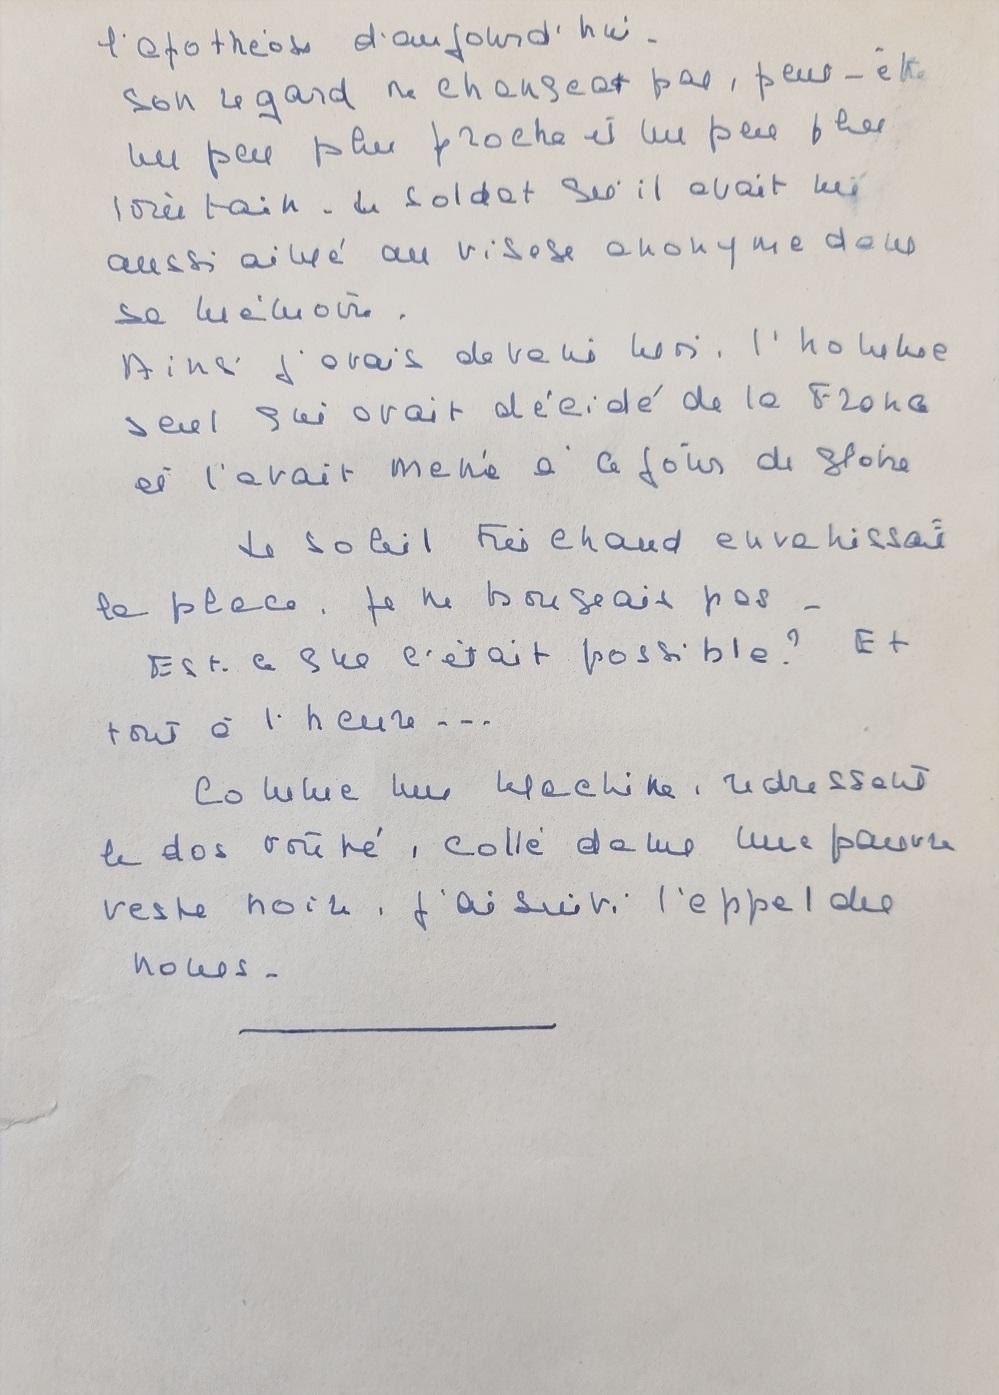 l'apothéose d'aujourd'hui -
son regard ne changeat pas, peut-être
un peu plus proche et un peu plus
lointain - le soldat qu'il avait lui
aussi aimé au visage anonyme dans
sa mémoire.
Ainsi j'avais devant moi, l'homme
seul qui avait décidé de la France
et l'avait menée à ce jour de gloire
Le soleil très chaud envahissait
la place, je ne bougeais pas -
Est-ce que c'était possible? Et
tout à l'heure ---
Comme une machine, redressant
le dos voûté, collé dans une pauvre
veste noire, j'ai suivi l'appel des
noms -